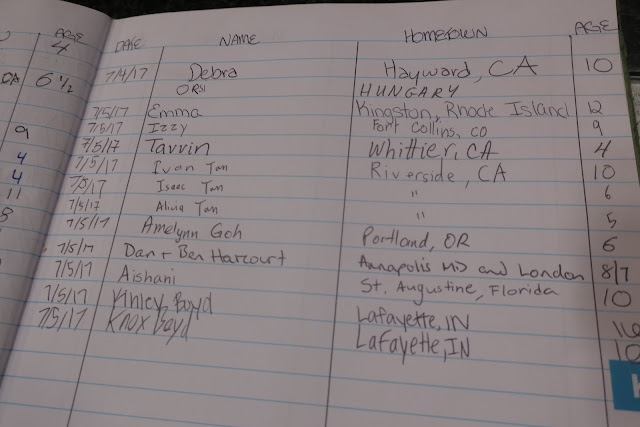 AGE DATE NAME HOMETOWN AGE
4
DA 6 1/2 7/4/17 Debra Hayward, CA 10
ORSI HUNGARY
7/5/17 Emma Kingston, Rhode Island 12
9 7/5/17 Izzy Fort Collins, CO 9
7/5/17 Tavvin Whittier, CA 4
4 7/5/17 Ivan Tan Riverside, CA 10
4 7/5/17 Isaac Tan " 6
11 7/5/17 Alivia Tan " 5
8 7/5/17 Amelynn Goh Portland, OR 6
7/5/17 Dan + Ben Harcourt Annapolis MD and London 8/7
7/5/17 Aishani St. Augustine, Florida 10
7/5/17 Kinley Boyd Lafayette, IN
7/5/17 Knox Boyd Lafayette, IN 10